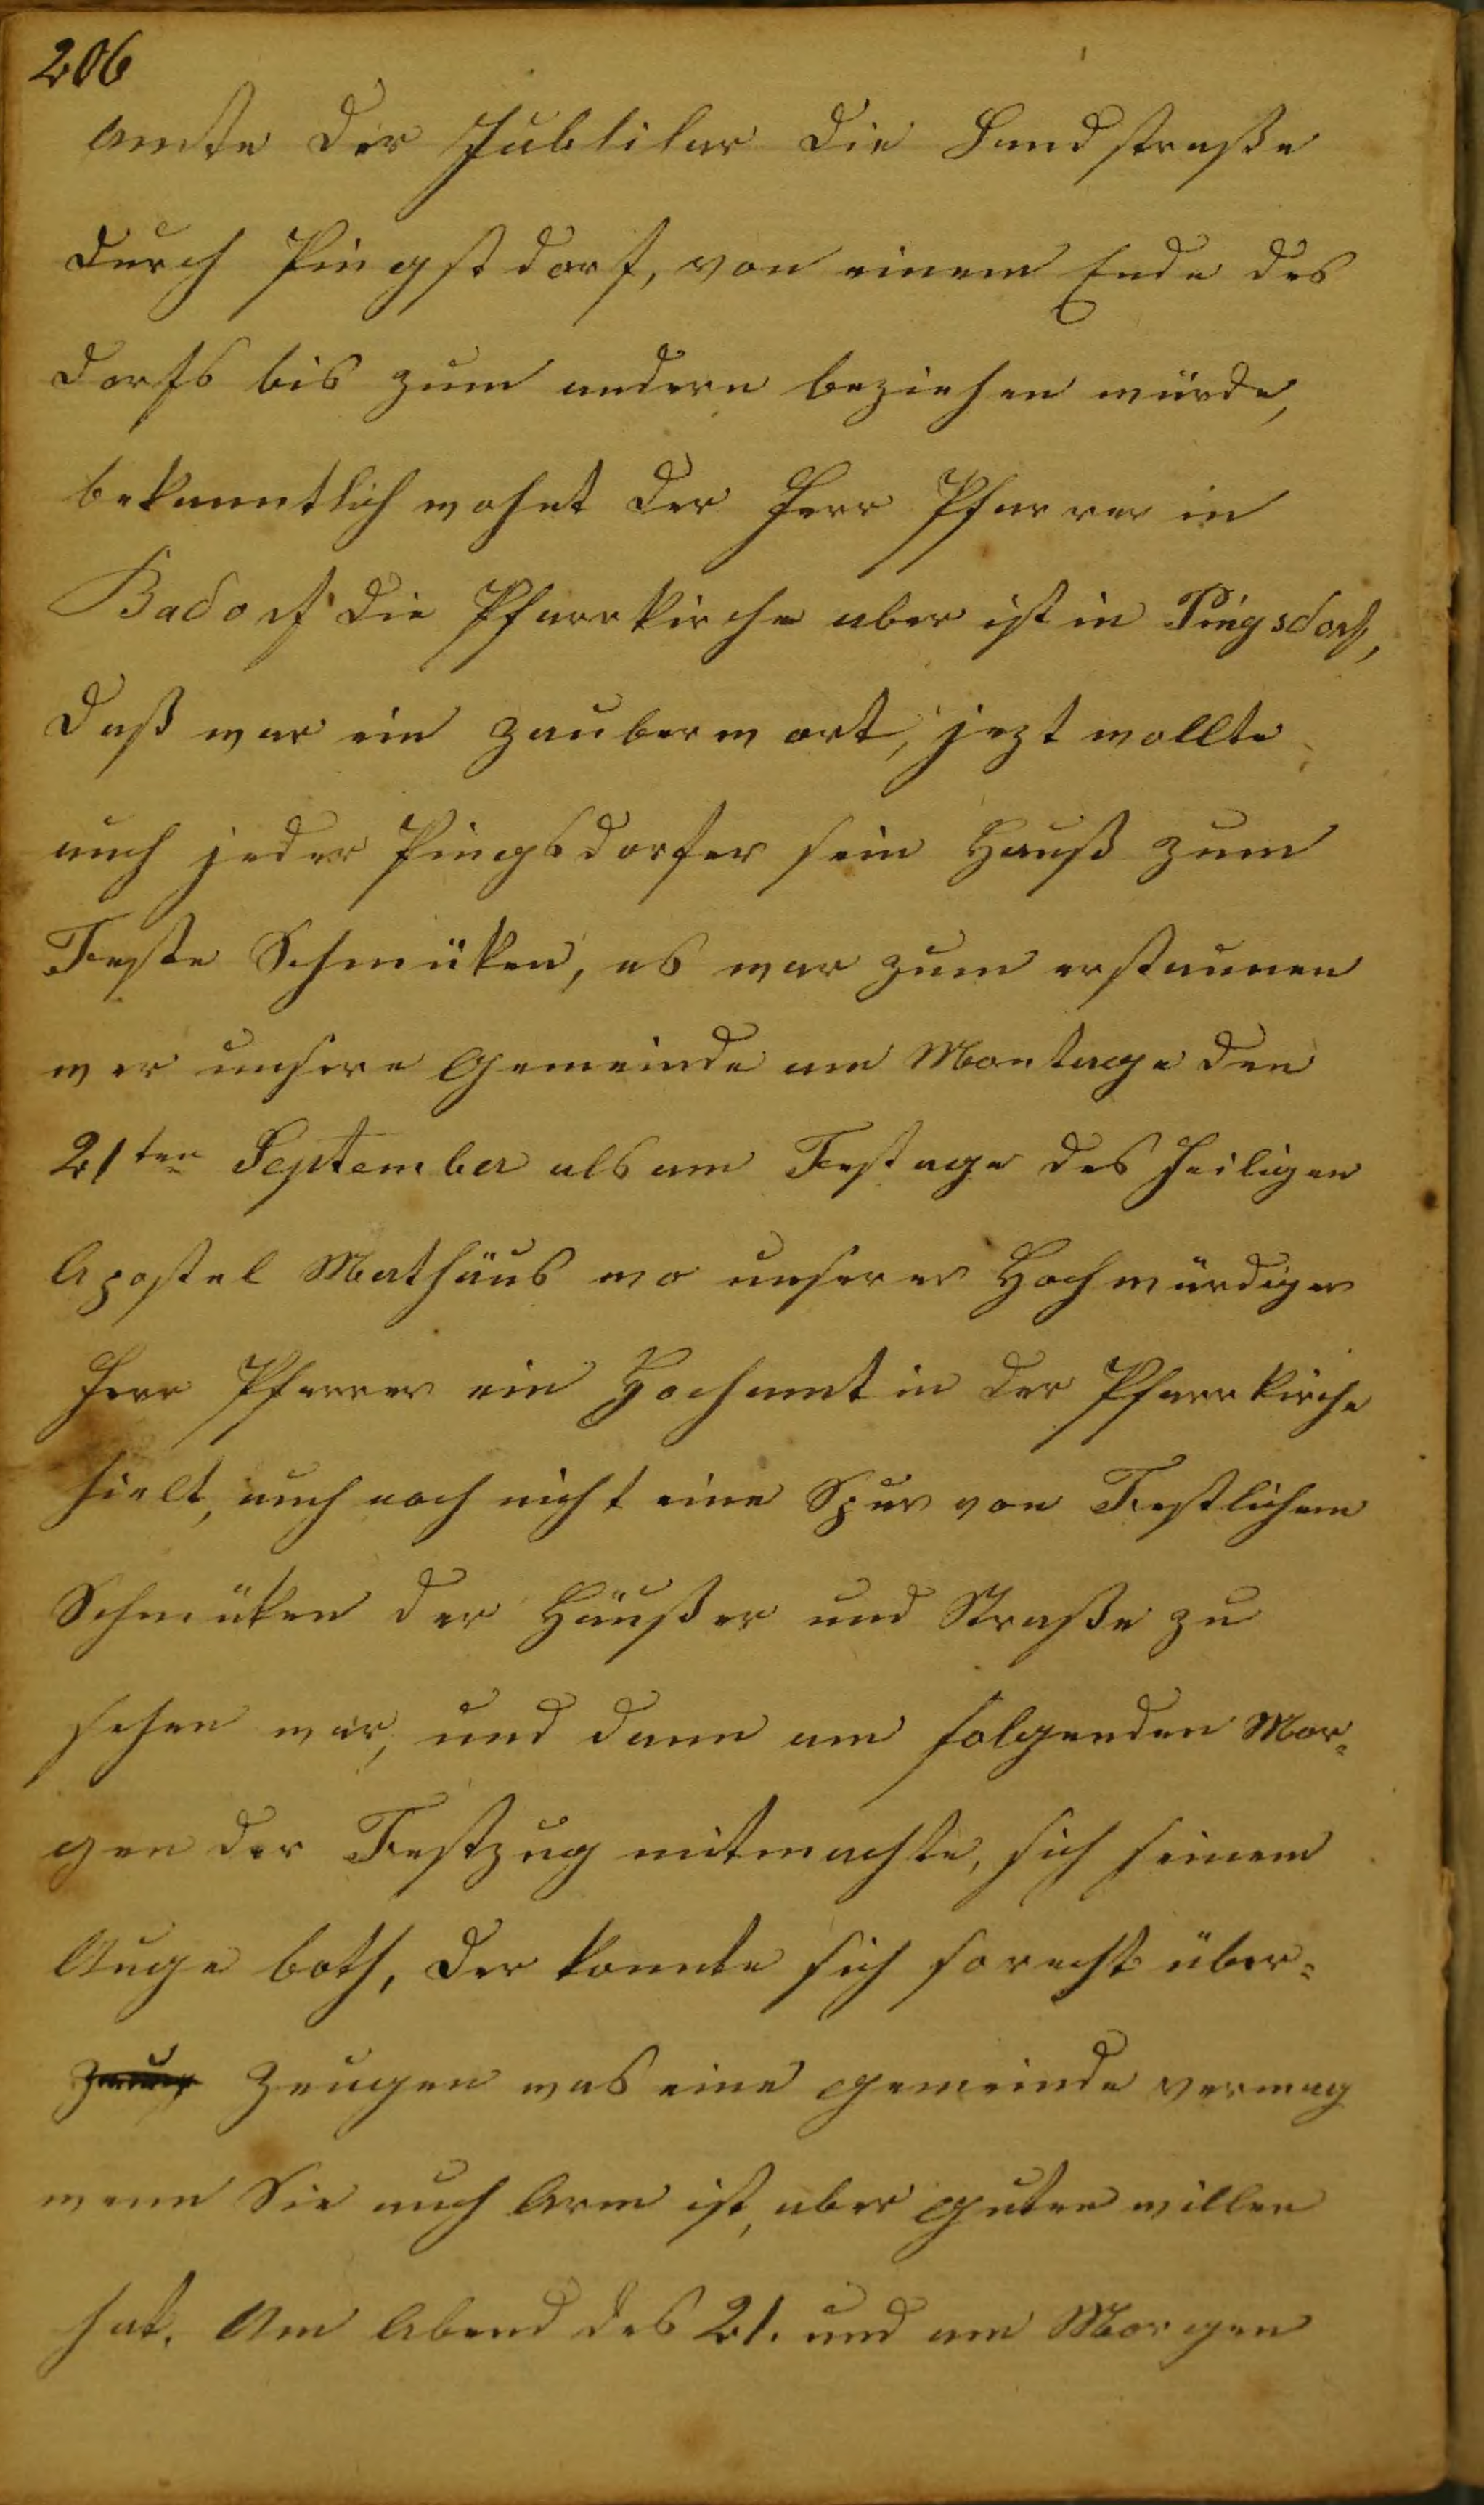 206
Amte der Jublilar die Landstraße
durch Pingstdorf, von einem Ende des
dorfs bis zum andern beziehen würde,
bekanntlich wohnt der Herr Pfarrer in
Badorf die Pfarrkirche aber ist in Pingsdorf,
daß war ein zauberwort, jezt wollte
auch jeder Pingsdorfer sein Hauß zum
Feste Schmüken, es war zum erstaunen
wer unsere Gemeinde am Montage den
21ten September als am Festage des heiligen
Apostel Mathäus wo unserer Hochwürdiger
Herr Pfarrer ein Hochamt in der Pfarrkirche
hielt, auch noch nicht eine Spur von Festlichem
Schmüken der Häußer und Straße zu
sehen war, und dann am folgenden Mor-
gen der Festzug mitmachte, sich seinem
Auge both, der konnte sich so recht über-
zeugen was eine gemeinde vermag
wenn Sie auch Arm ist, aber guten willen
hat. Am Abend des 21. und am Morgen